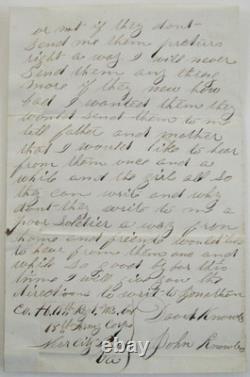 or not if they dont
send me them picturs
right a way I will never
send them any thing
more if they new how
bad I wanted them they
would send them to me
tell father and mother
that I would like to hear
from them once and a
while and the girls all so
they can write and why
dont they write to me a
poor soldier a way from
home and friends would like
to hear from them one and
while so good by for this
time I will give you the
directions to writ to Jonathan
Co. H. 11th Regt. Me. Vol
David Knowls
18th Army Corps
City
John Knowles
Va
worthpoint